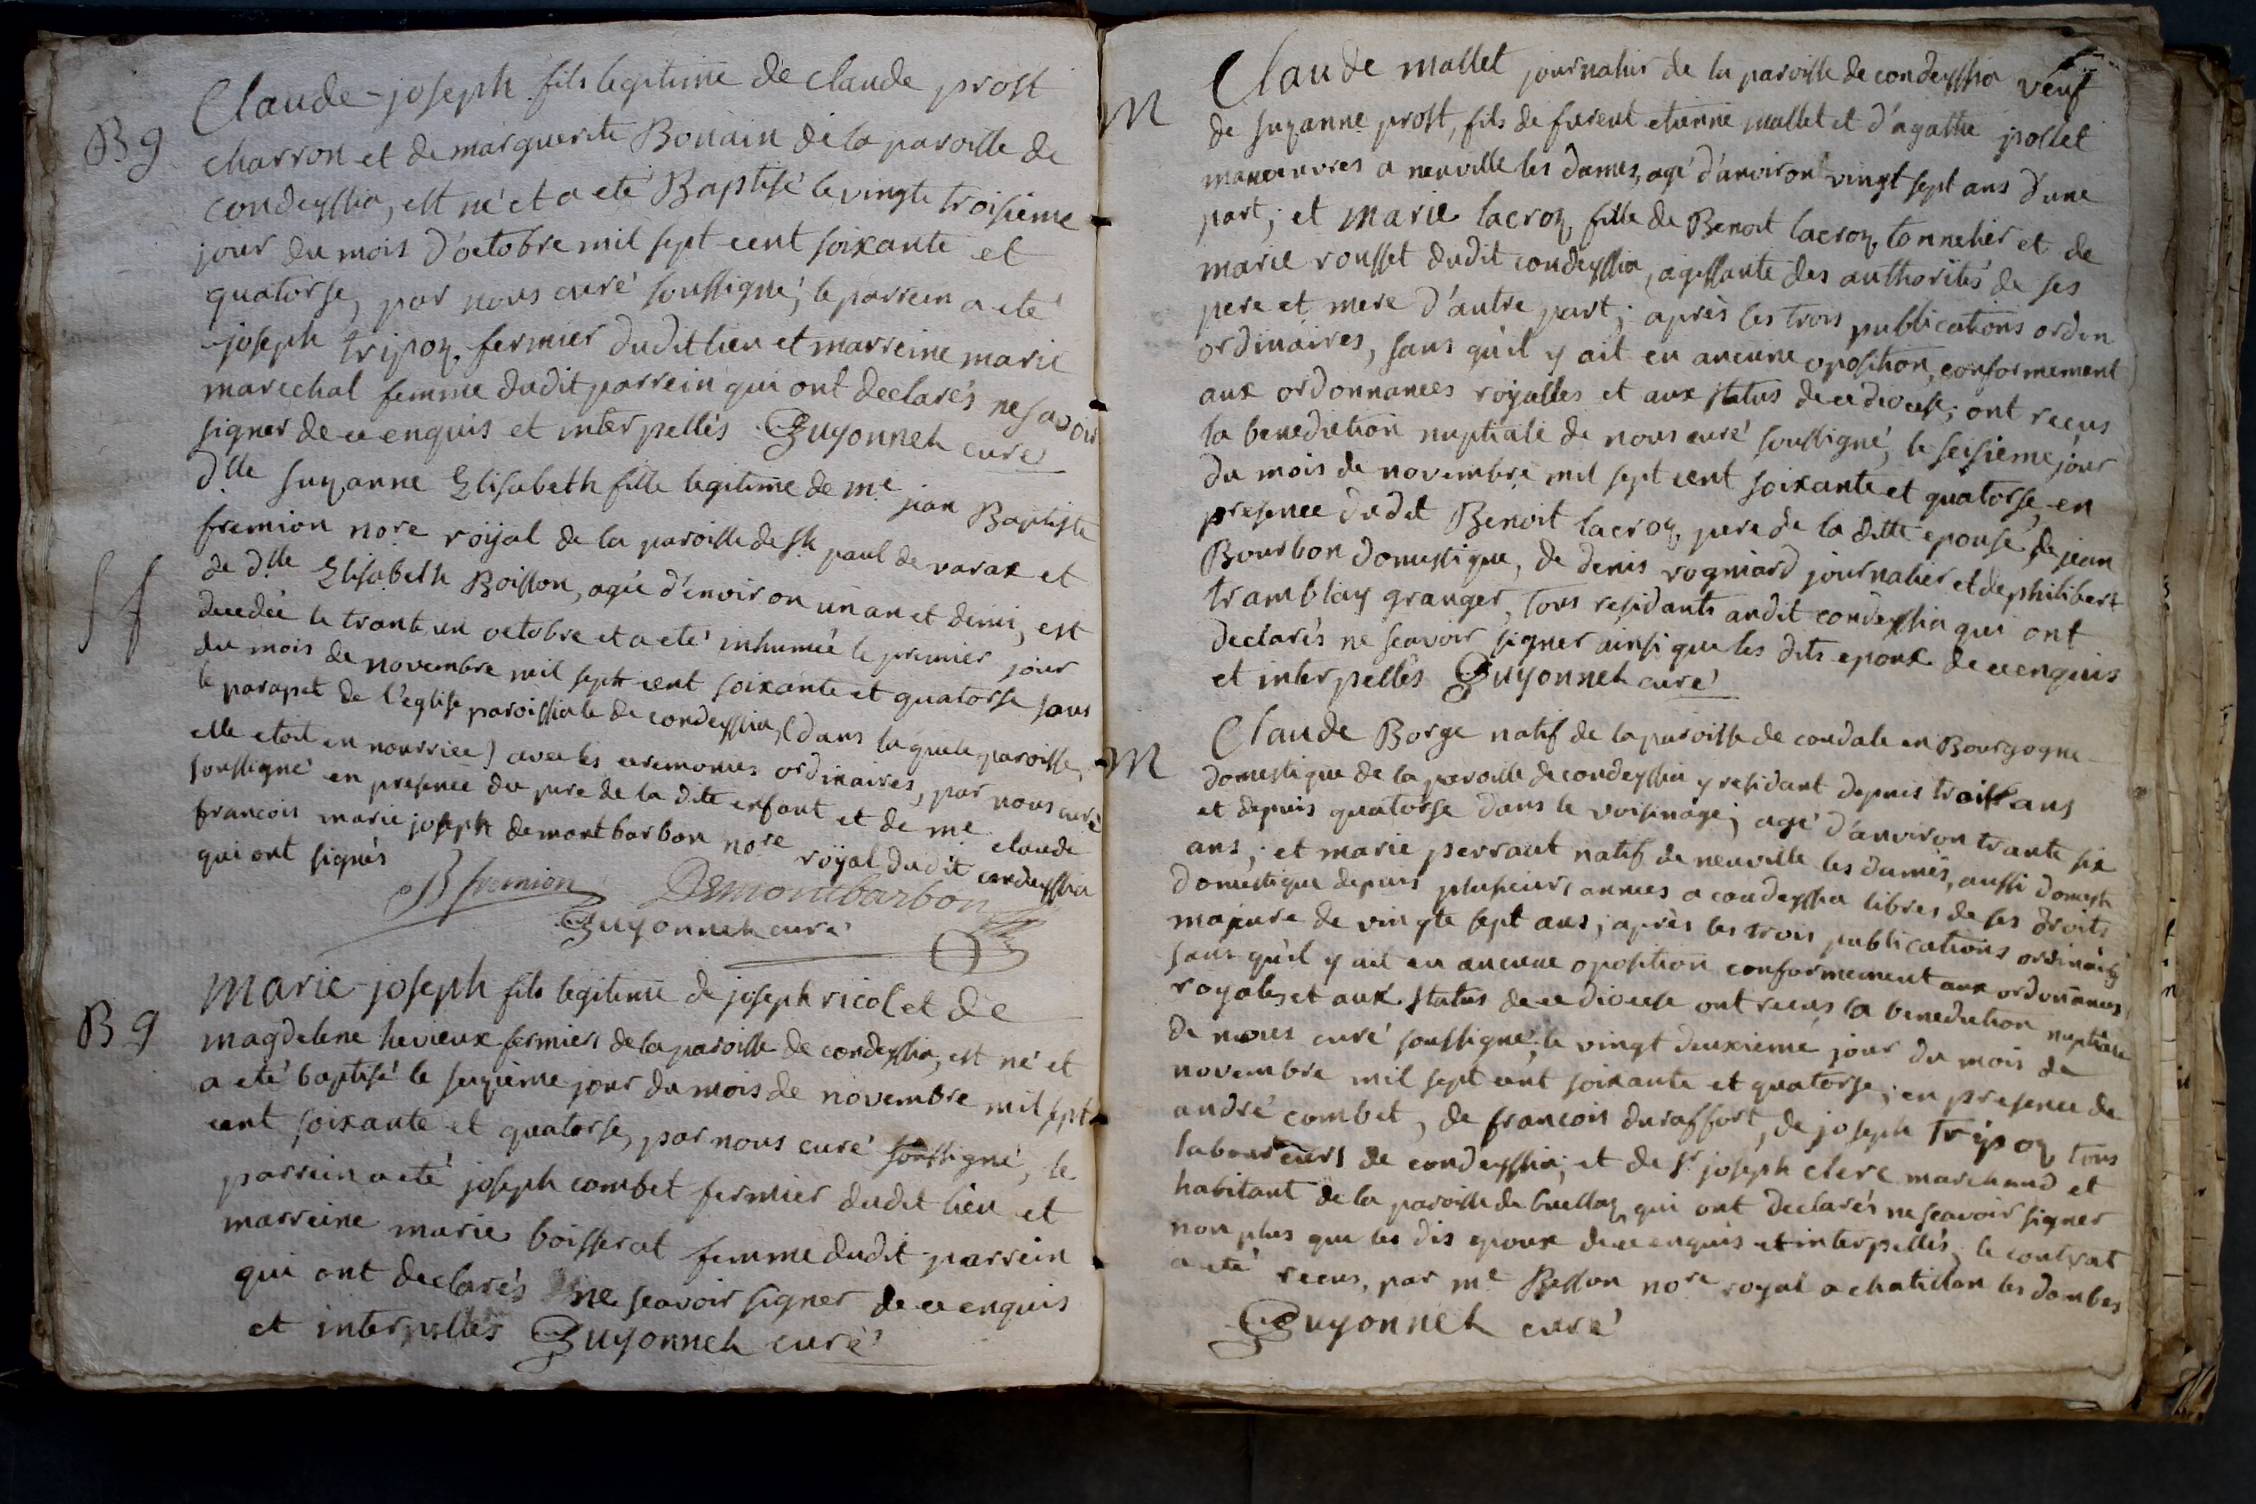 B g
Claude-joseph fils legitime de claude prost
charron et de marguerite Bonain de la paroisse de
condeyssia, est né et a eté Baptisé le vingte troisieme
jour du mois d'octobre mil sept cent soixante et
quatorse, par nous curé soussigné; le parrein a eté
joseph tripoz fermier dudit lieu et marreine marie
marechal femme dudit parrein qui ont declarés ne savoir
signer de ce enquis et interpellés Guyonnet curé
S f
dlle suzanne Elisabeth fille legitime de me jean Baptiste
fremion nore royal de la paroisse de st paul de varax et
de dlle Elisabeth Boisson, agée d'environ un an et demi, est
decedée le trante un octobre et a eté inhumée le premier jour
du mois de novembre mil sept cent soixante et quatorse sous
le parapet de l'eglise paroissiale de condeyssia, (dans laquele paroisse,
elle etoit en nourrice) avec les ceremonies ordinaires, par nous curé
soussigné en presence du pere de la dite enfant et de me claude
francois marie joseph demontbarbon nore royal dudit condeyssia
qui ont signés
B fremion Demontbarbon
Guyonnet curé
B g
Marie-joseph fils legitime de joseph ricol et de
magdelene hevieux fermiers de la paroisse de condeyssia, est né et
a eté baptisé le seizieme jour du mois de novembre mil sept
cent soixante et quatorse, par nous curé soussigné, le
parrein a eté joseph combet fermier dudit lieu et
marreine marie boisserat femme dudit parrein
qui ont declarés ne scavoir signer de ce enquis
et interpellés Guyonnet curé
M
Claude mallet journalier de la paroisse de condeyssia veuf
de suzanne prost, fils de furent etienne mallet et d'agathe pollet
manoeuvres a neuville les dames, agé d'anviront vingt sept ans d'une
part; et marie lacroz fille de Benoit lacroz tonnelier et de
marie rousset dudit condeyssia, agissante des authorités de ses
pere et mere d'autre part; après les trois publications ordin
ordinaires, sans qu'il y ait eu aucune oposition, conformement
aux ordonnances royalles et aux status de ce diocese; ont recus
la benediction nuptiale de nous curé soussigné, le seisieme jour
du mois de novembre mil sept cent soixante et quatorse, en
presence dudit Benoit lacroz pere de la ditte epouse, de jean
Bourbon domestique, de denis rogniard journalier et de philibert
tramblay granger, tous residants audit condeyssia qui ont
declarés ne scavoir signer ainsi que les dits epoux de ce enquis
et interpellés Guyonnet curé
M
Claude Borge natif de la paroisse de condale en Bourgogne
domestique de la paroisse de condeyssia y residant depuis trois ans
et depuis quatorse dans le voisinage; agé d'anviron trante six
ans; et marie perraut natif de neuville les dames, aussi domesti
domestique depuis plusieurs annees a condeyssia libres de ses droits
majeure de vingte sept ans; après les trois publications ordinaires
sans qu'il y ait eu aucune oposition conformement aux ordonnances
royales et aux status de ce diocese ont recus la benediction nuptiale
de nous curé soussigné; le vingt deuxieme jour du mois de
novembre mil sept cent soixante et quatorse; en presence de
andré combet, de francois duraffort, de joseph tripoz tous
laboureurs de condeyssia; et de sr joseph clerc marchand et
habitant de la paroisse de buellaz qui ont declarés ne scavoir signer
non plus que les dis epoux de ce enquis et interpellés, le contrat
a eté recus, par me Besson nore royal a chatillon les dombes
Guyonnet curé